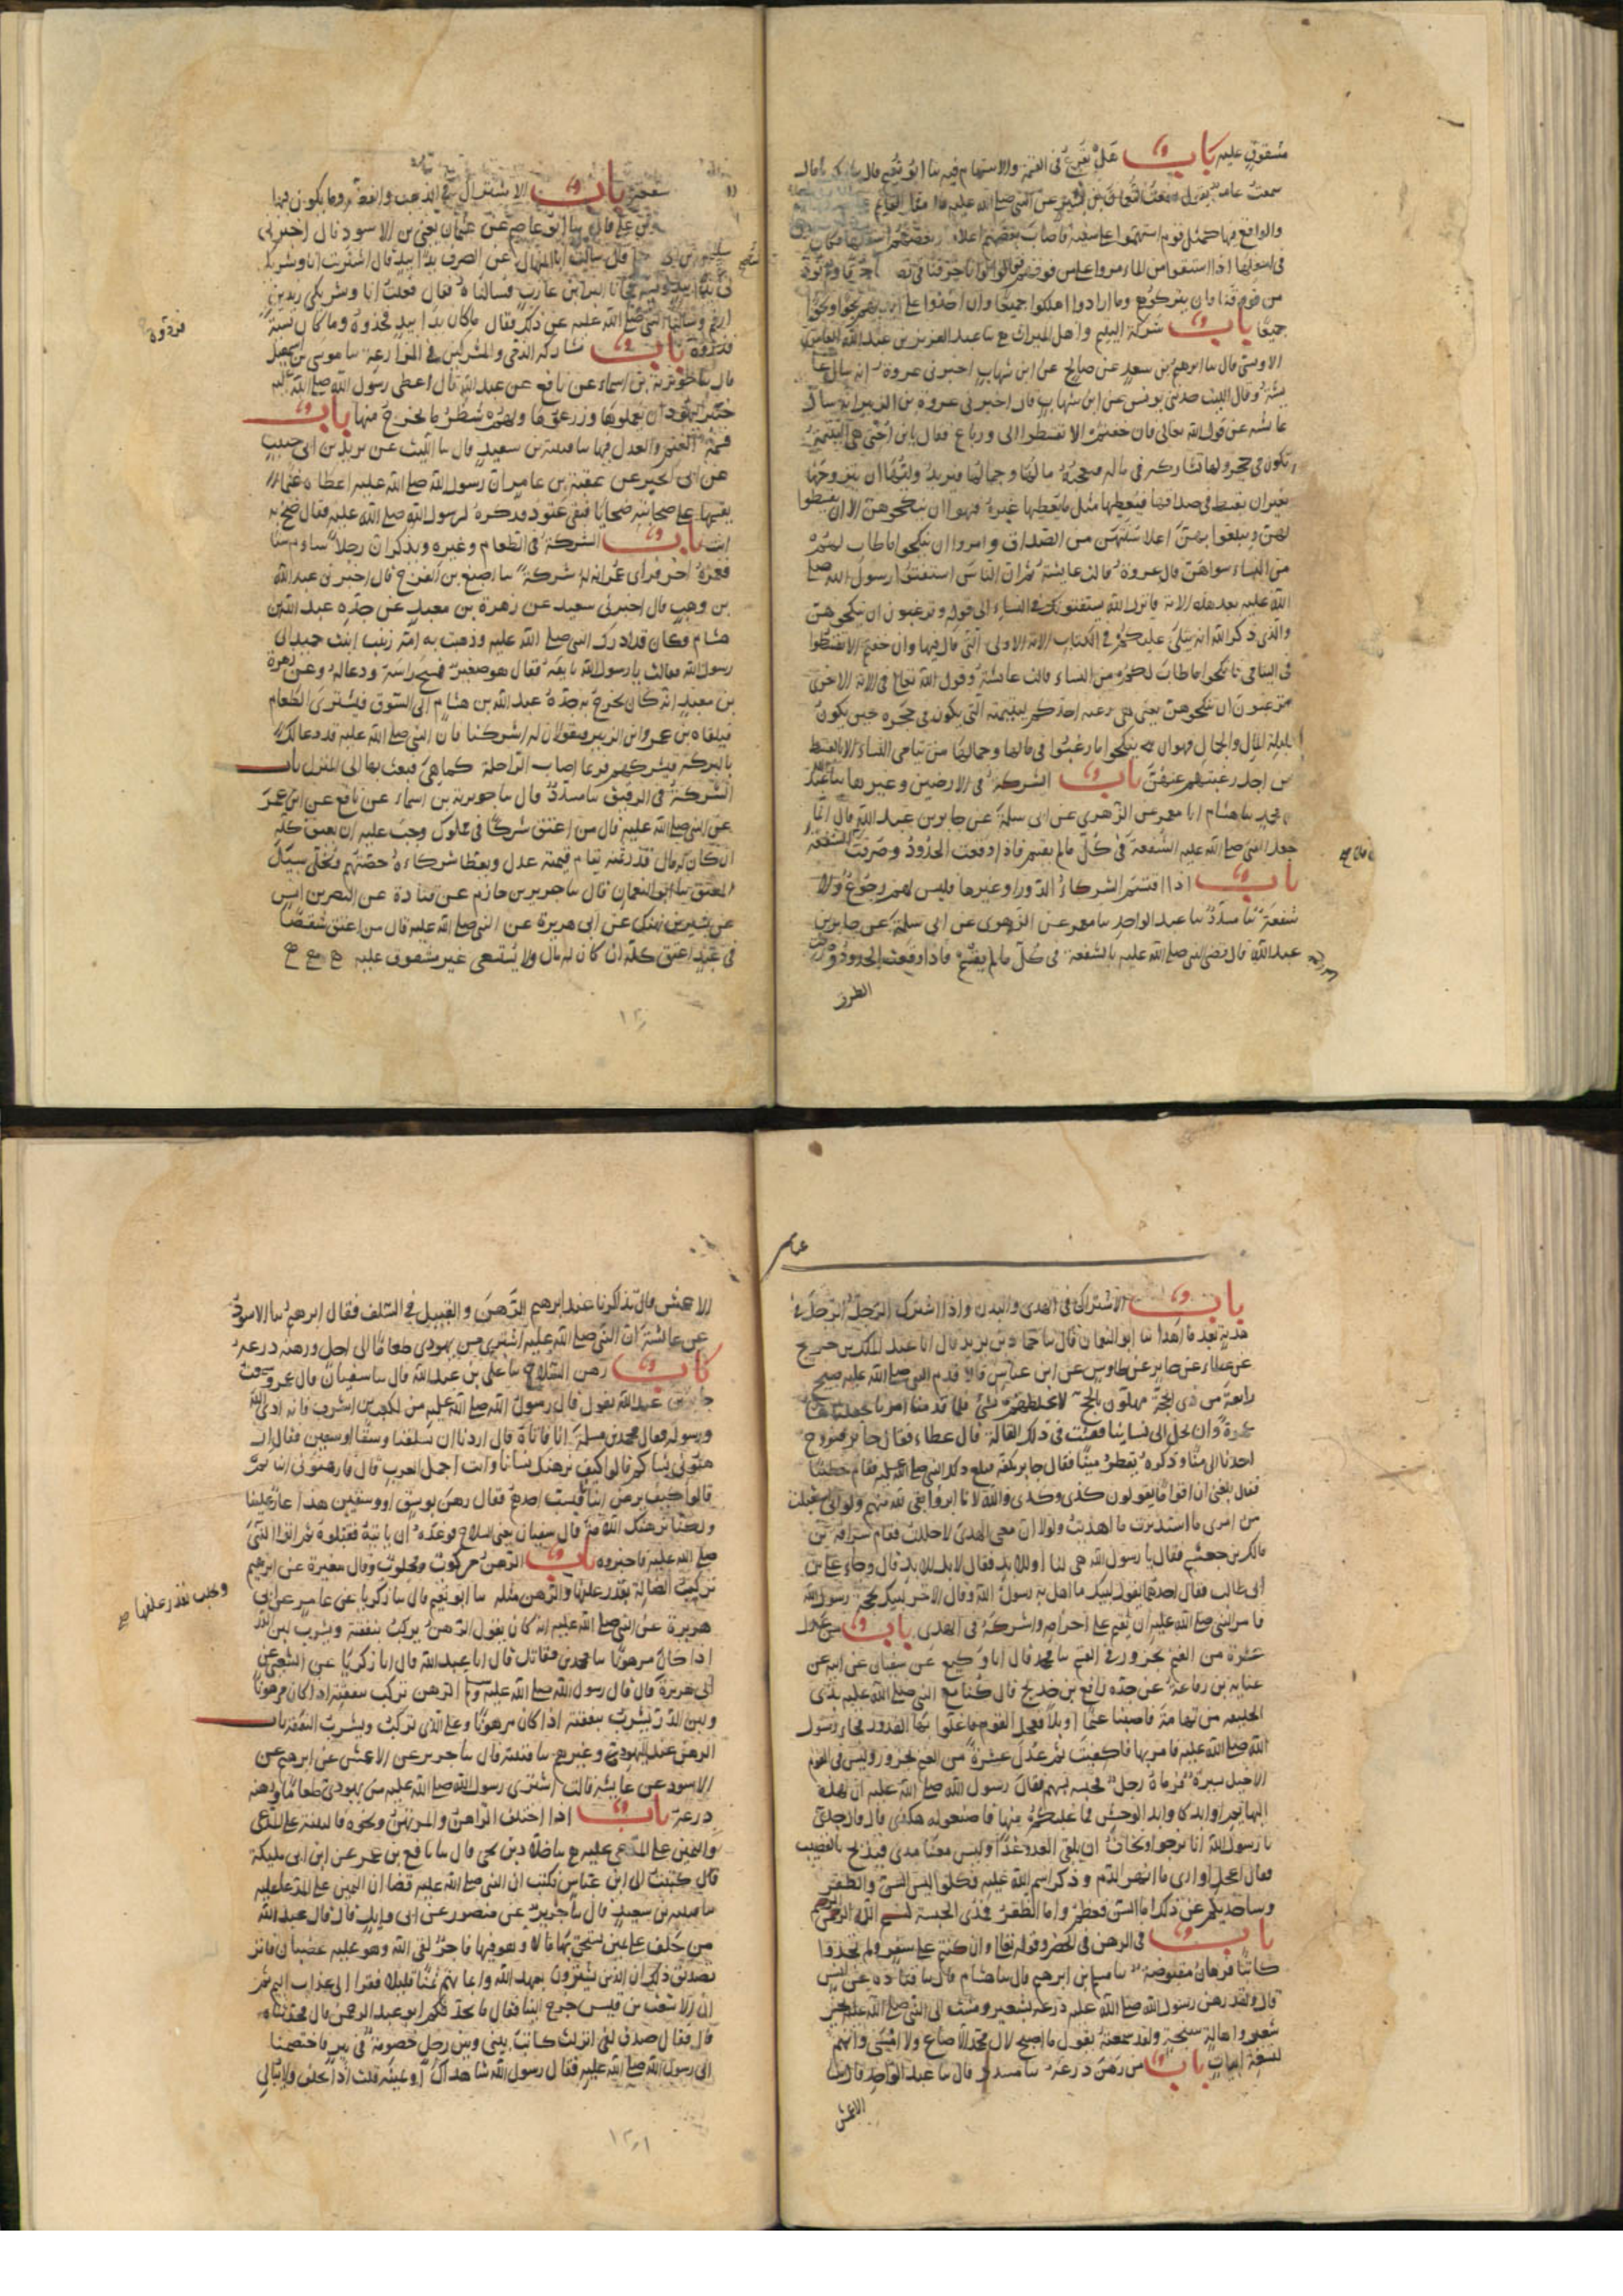 مشقوق عليه باب هل يقرع في القسمة والاستهام فيه نا ابو نعيم قال نا زكريا قال
سمعت عامرا يقول سمعت النعمان بن بشير عن النبي صلى الله عليه قال مثل القائم
والواقع فيها كمثل قوم استهموا على سفينة فاصاب بعضهم اعلاها وبعضهم اسفلها فكان
في اسفلها اذا استقوا من الماء مروا على من فوقهم فقالوا لو انا خرقنا في نصيبنا خرقا ولم نؤذ
من فوقنا فان يتركوهم وما ارادوا هلكوا جميعا وان اخذوا على ايديهم نجوا ونجوا
جميعا باب شركة اليتيم واهل الميراث نا عبد العزيز بن عبد الله العامري
الاويسي قال نا ابرهيم بن سعد عن صالح عن ابن شهاب اخبرني عروة انه سال عا
يشة وقال الليث حدثني يونس عن ابن شهاب قال اخبرني عروة بن الزبير انه سال
عائشة عن قول الله تعالى فان خفتم الا تقسطوا الى ورباع فقال يا بن اختي هي اليتيمة
تكون في حجر وليها تشاركه في ماله فيعجبه مالها وجمالها فيريد وليها ان يتزوجها
بغير ان يقسط في صداقها فيعطيها مثل ما يعطيها غيره فنهوا ان ينكحوهن الا ان يقسطوا
لهن ويبلغوا بهن اعلا سنتهن من الصداق وامروا ان ينكحوا ما طاب لهم
من النساء سواهن قال عروة قالت عائشة ثم ان الناس استفتوا رسول الله صلى
الله عليه بعد هذه الاية فانزل الله يستفتونك في النساء الى قوله وترغبون ان تنكحوهن
والذي ذكر الله انه يتلى عليكم في الكتاب الاية الاولى التي قال فيها وان خفتم الا تقسطوا
في اليتامى فانكحوا ما طاب لكم من النساء قالت عائشة وقول الله تعالى في الاية الاخرى
وترغبون ان تنكحوهن يعني هي رغبة احدكم ليتيمته التي يكون في حجره حين يكون
قليلة المال والجمال فنهوا ان ينكحوا ما رغبوا في مالها وجمالها من يتامى النساء الا بالقسط
من اجل رغبتهم عنهن باب الشركة في الارضين وغيرها نا عبد
الله بن محمد نا هشام انا معمر عن الزهري عن ابي سلمة عن جابر بن عبد الله قال انما
جعل النبي صلى الله عليه الشفعة في كل ما لم يقسم فاذا وقعت الحدود وصرفت الطرق فلا شفعة
باب اذا اقتسم الشركاء الدور او غيرها فليس لهم رجوع ولا
شفعة نا مسدد نا عبد الواحد نا معمر عن الزهري عن ابي سلمة عن جابر بن
عبد الله قال قضى النبي صلى الله عليه بالشفعة في كل ما لم يقسم فاذا وقعت الحدود وصرفت
الطرق
شفعة باب الاشتراك في الذهب والفضة وما يكون فيها
بن علي قال نا ابو عاصم عن عثمان يعني بن الاسود قال اخبرني
سليمن بن ابي قال سالت ابا المنهال عن الصرف يدا بيد قال اشتريت انا وشريك
لي يدا بيد ونسية فجانا البراء بن عازب فسالناه فقال فعلت انا وشريكي زيد بن
ارقم وسالنا النبي صلى الله عليه عن ذلك فقال ما كان يدا بيد فخذوه وما كان نسية
فذروه باب مشاركة الذمي والمشركين في المزارعة نا موسى بن اسمعيل
قال نا جويرية بن اسماء عن نافع عن عبد الله قال اعطى رسول الله صلى الله عليه
خيبر اليهود ان يعملوها وزرعوها ولهم شطر ما يخرج منها باب
قسمة الغنم والعدل فيها نا قتيبة بن سعيد قال نا الليث عن يزيد بن ابي حبيب
عن ابي الخير عن عقبة بن عامر ان رسول الله صلى الله عليه اعطاه غنما
يقسمها على صحابته ضحايا فبقي عتود فذكره لرسول الله صلى الله عليه فقال ضح به
انت باب الشركة في الطعام وغيره ويذكر ان رجلا ساوم شيئا
فغمزه اخر فراى عمر ان له شركة نا اصبغ بن الفرج قال اخبرني عبد الله
بن وهب قال اخبرني سعيد عن زهرة بن معبد عن جده عبد الله بن
هشام وكان قد ادرك النبي صلى الله عليه وذهبت به امه زينب ابنت حميد الى
رسول الله فقالت يا رسول الله بايعه فقال هو صغير فمسح راسه ودعا له وعن زهرة
بن معبد انه كان يخرج به جده عبد الله بن هشام الى السوق فيشترى الطعام
فيلقاه بن عمر وابن الزبير فيقولان له اشركنا فان النبي صلى الله عليه قد دعا لك
بالبركة فيشركهم فربما اصاب الراحلة كما هي فيبعث بها الى المنزل باب
الشركة في الرقيق نا مسدد قال نا جويرية بن اسماء عن نافع عن ابن عمر
عن النبي صلى الله عليه قال من اعتق شركا في مملوك وجب عليه ان يعتق كله
ان كان له مال قدر ثمنه يقام قيمة عدل ويعطا شركاءه حصتهم ويخلى سبيل
المعتق نا ابو النعمان قال نا جرير بن حازم عن قتادة عن النضر بن انس
عن بشير بن نهيك عن ابي هريرة عن النبي صلى الله عليه قال من اعتق شقصا
في عبد اعتق كله ان كان له مال والا يستسعى غير مشقوق عليه
باب الاشتراك في الهدى والبدن واذا اشترك الرجل الرجل في
هديه بعد ما اهدا نا ابو النعمان قال نا حماد بن يزيد قال انا عبد الملك بن جريج
عن عطاء عن جابر وعن طاوس عن ابن عباس قالا قدم النبي صلى الله عليه صبح
رابعة من ذي الحجة مهلون بالحج لا يخلطهم شيء فلما قدمنا امرنا فجعلناها
عمرة وان نحل الى نسائنا ففشت في ذلك القالة قال عطاء فقال جابر فيروح
احدنا الى منى وذكره يقطر منيا فقال جابر بكفه فبلغ ذلك النبي صلى الله عليه فقام خطيبا
فقال بلغني ان اقواما يقولون كذى وكذى والله لانا ابر واتقى لله منهم ولو اني استقبلت
من امرى ما استدبرت ما اهديت ولولا ان معي الهدى لاحللت فقام سراقة بن
مالك بن جعشم فقال يا رسول الله هي لنا او للابد فقال لا بل للابد قال وجاء علي بن
ابي طالب فقال احدهما يقول لبيك بما اهل به رسول الله وقال الاخر لبيك بحجة رسول الله
فامر النبي صلى الله عليه ان يقيم على احرامه واشركه في الهدى باب من عدل
عشرة من الغنم بجزور في القسم نا محمد قال انا وكيع عن سفيان عن ابيه عن
عباية بن رفاعة عن جده رافع بن خديج قال كنا مع النبي صلى الله عليه بذى
الحليفة من تهامة فاصبنا غنما او ابلا فعجل القوم فاغلوا بها القدور فجاء رسول
الله صلى الله عليه فامر بها فاكفيت ثم عدل عشرة من الغنم بجزور وليس في القوم
الا خيل يسيرة فرماه رجل فحبسه بسهم فقال رسول الله صلى الله عليه ان لهذه
البهايم اوابد كاوابد الوحش فما غلبكم منها فاصنعوا به هكذى قال قال جدي
يا رسول الله انا نرجوا او نخاف ان نلقى العدو غدا وليس معنا مدى فنذبح بالقصب
فقال اعجل او ارنى ما انهر الدم وذكر اسم الله عليه فكلوا ليس السن والظفر
وساحدثكم عن ذلك اما السن فعظم واما الظفر فمدى الحبشة بسم الله الرحمن الرحيم
باب في الرهن في الحضر وقوله تعالى وان كنتم على سفر ولم تجدوا
كاتبا فرهان مقبوضة نا مسلم بن ابرهيم قال نا هشام قال نا قتادة عن انس
قال ولقد رهن رسول الله صلى الله عليه درعه بشعير ومشيت الى النبي صلى الله عليه بخبز
شعير واهالة سنخة ولقد سمعته يقول ما اصبح لال محمد الا صاع ولا امسى وانهم
لتسعة ابيات باب من رهن درعه نا مسدد قال نا عبد الواحد قال نا
الاعمش
الاعمش قال تذاكرنا عند ابرهيم الرهن والقبيل في السلف فقال ابرهيم نا الاسود
عن عائشة ان النبي صلى الله عليه اشترى من يهودي طعاما الى اجل ورهنه درعه
باب رهن السلاح نا علي بن عبد الله قال نا سفيان قال عمرو سمعت
جابر بن عبد الله يقول قال رسول الله صلى الله عليه من لكعب بن الاشرف فانه اذى الله
ورسوله فقال محمد بن مسلمة انا فاتاه قال اردنا ان تسلفنا وسقا او وسقين فقال ار
هنوني نساكم قالوا كيف نرهنك نسانا وانت اجمل العرب قال فارهنوني ابناكم
قالوا كيف نرهن ابنانا فيسب احدهم فقال رهن بوسق او وسقين هذا عار علينا
ولكنا نرهنك اللامة قال سفيان يعني السلاح فوعده ان ياتيه فقتلوه ثم اتوا النبي
صلى الله عليه فاخبروه باب الرهن مركوب ومحلوب وقال مغيرة عن ابرهيم
تركب الضالة بقدر علفها والرهن مثله نا ابو نعيم قال نا زكريا عن عامر عن ابي
هريرة عن النبي صلى الله عليه انه كان يقول الرهن يركب بنفقته ويشرب لبن الدر
اذا كان مرهونا نا محمد بن مقاتل قال انا عبد الله قال انا زكريا عن الشعبي عن
ابي هريرة قال قال رسول الله صلى الله عليه وسلم الرهن تركب بنفقته اذا كان مرهونا
ولبن الدر يشرب بنفقته اذا كان مرهونا وعلى الذى تركب ويشرب النفقة باب
الرهن عند اليهود وغيرهم نا قتيبة قال نا جرير عن الاعمش عن ابرهيم عن
الاسود عن عايشة قالت اشترى رسول الله صلى الله عليه من يهودي طعاما ورهنه
درعه باب اذا اختلف الراهن والمرتهن ونحوه فالبينة على المدعي
واليمين على المدعى عليه نا خلاد بن يحيى قال نا نافع بن عمر عن ابن ابي مليكة
قال كتبت الى ابن عباس فكتب ان النبي صلى الله عليه قضا ان اليمين على المدعا عليه
نا قتيبة بن سعيد قال نا جرير عن منصور عن ابي وايل قال قال عبد الله
من حلف على يمين يستحق بها مالا وهو فيها فاجر لقي الله وهو عليه غضبان فانز
تصديق ذلك ان الذين يشترون بعهد الله وايمانهم ثمنا قليلا فقرا الى عذاب اليم ثم
ان الاشعث بن قيس خرج الينا فقال ما يحدثكم ابو عبد الرحمن قال فحدثناه
قال فقال صدق لفي انزلت كانت بيني وبين رجل خصومة في بير فاختصمنا
الى رسول الله صلى الله عليه فقال رسول الله شاهداك او يمينه قلت اذا يحلف ولا يبالي